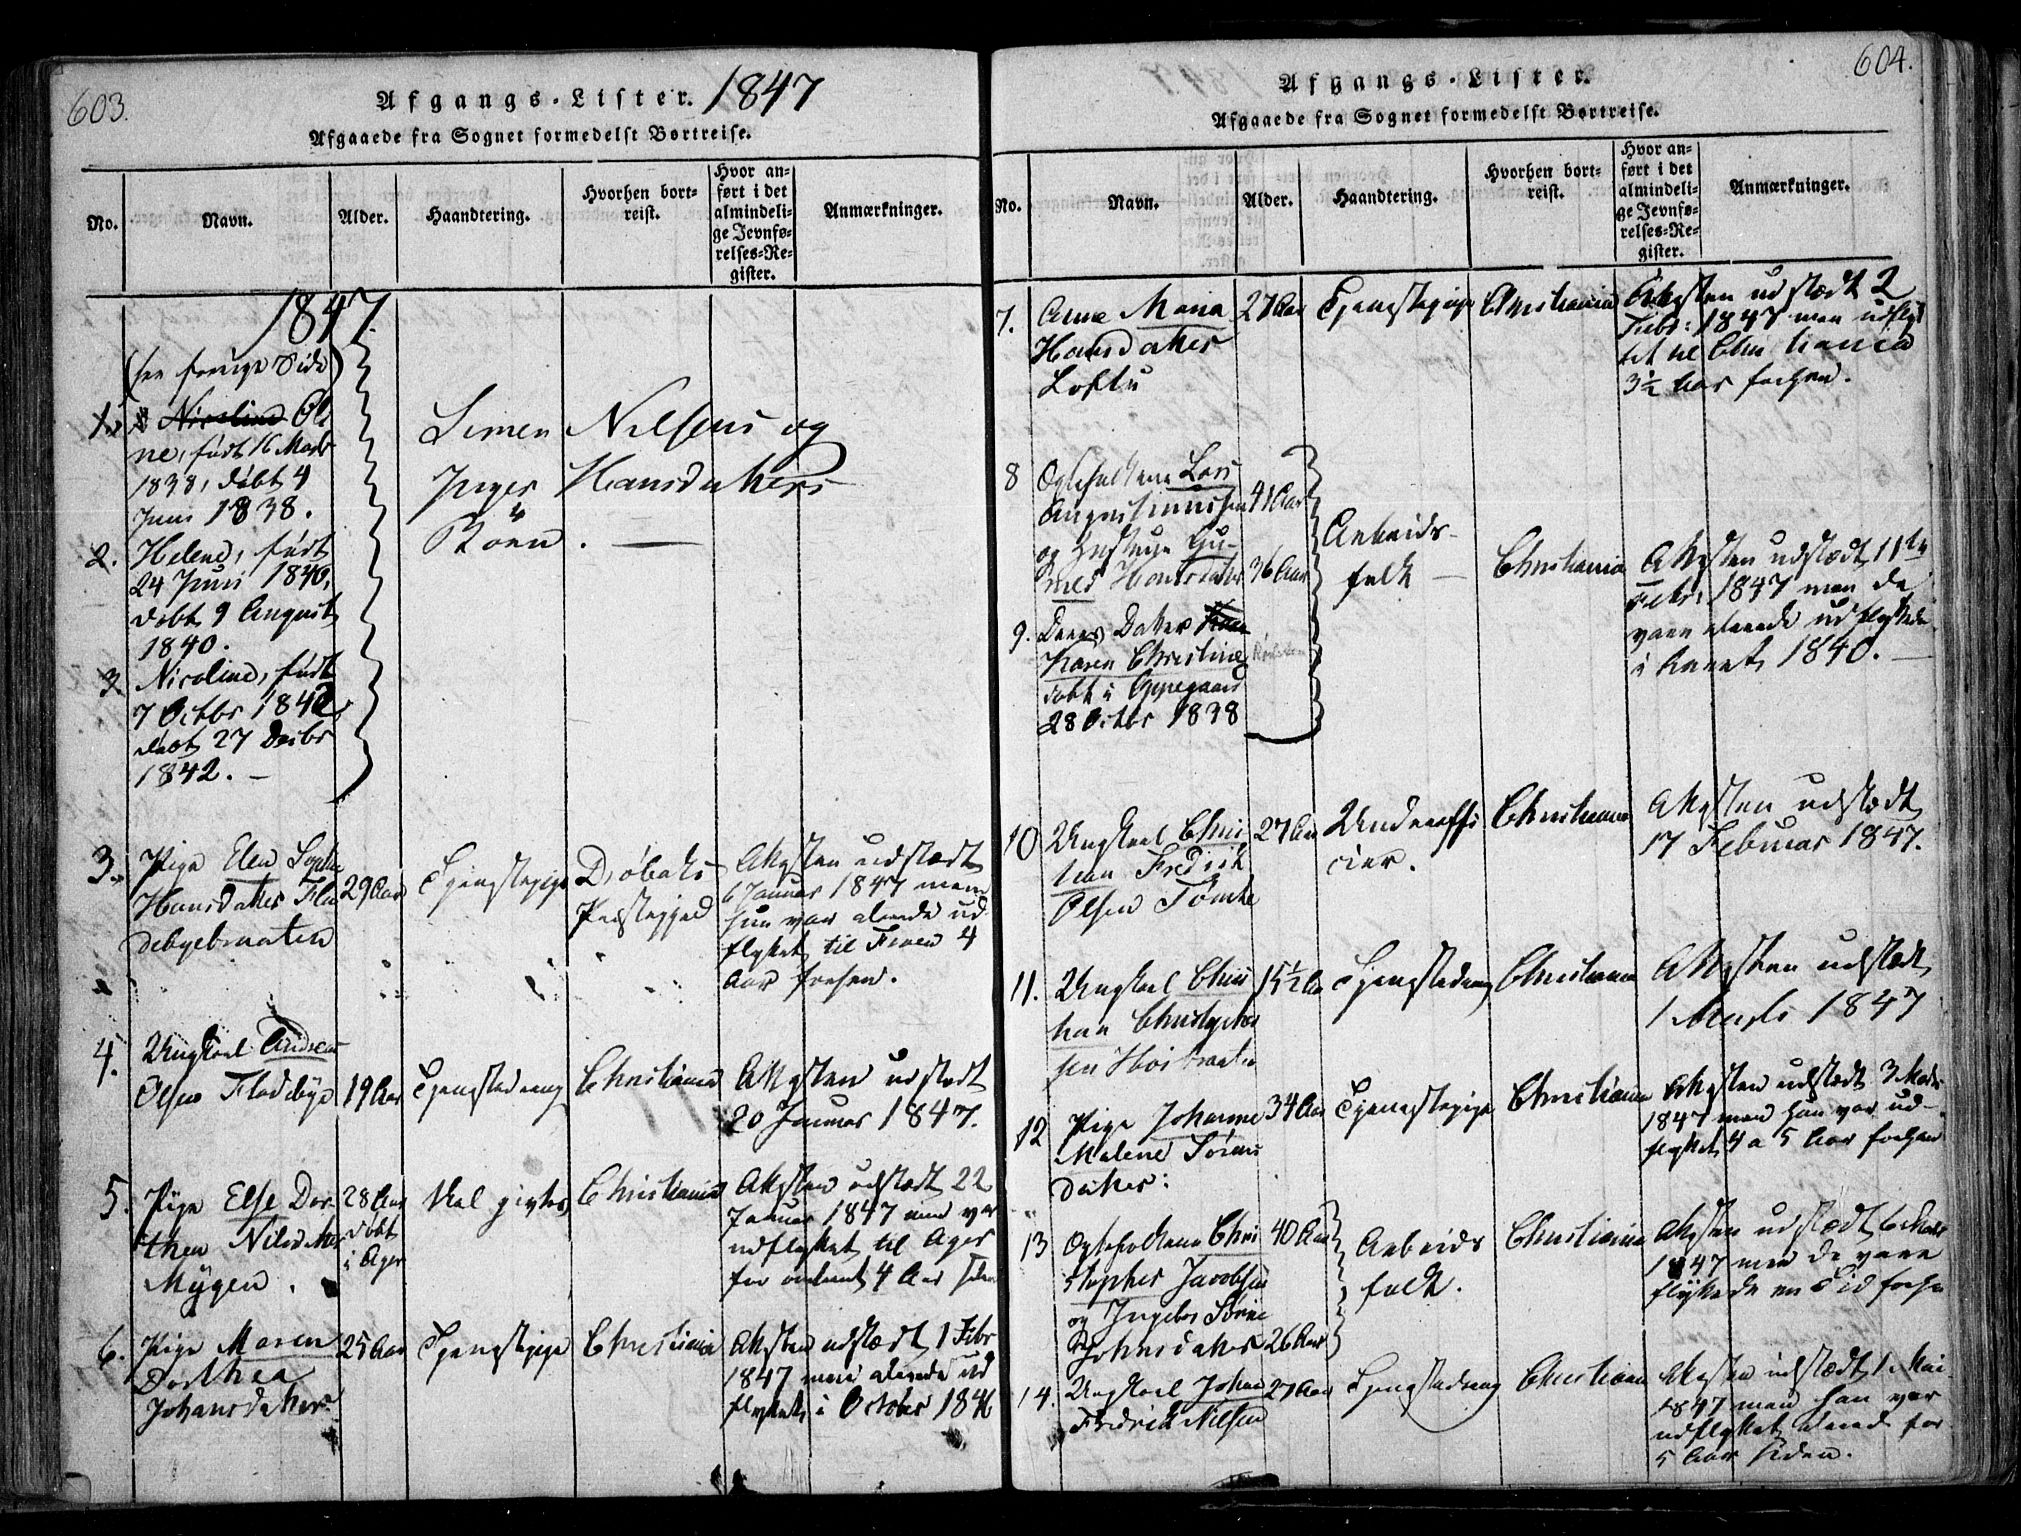 603.
Afgangs-Lister. 1847
Afgaaede fra Sognet formedelst Bortreise.
No.
Navn.
Alder.
Haandtering.
Hvorhen bort-
reist.
Hvor an-
ført i det
almindeli-
ge Jevnfø-
relses-Re-
gister.
Anmærkninger.
1847.
(see forrige Side)
1. Nicoline Oli
ne, født 16 Marts
1838, døbt 4
Juni 1838.
2. Helene, født
24 Juni 1840,
døbt 9 August
1840.
3. Nicoline, født
7 Octbr 1842
døbt 27 Decbr
1842. –
Simen Nilsens og
Inger Hansdatters
Börn. —
3. Pige Elen Sophie
Hansdatter Fla
debyebraaten
29 Aar
Tjenestepige
Drøbaks
Præstegjeld
Attesten udstædt
6 Januar 1847 men
hun var alerede ud-
flyttet til Froen 4
Aar forhen.
4. Ungkarl Andreas
Olsen Fladebye
19 Aar
Tjenestedreng
Christiania
Attesten udstædt
20 Januar 1847.
5. Pige Else Dor-
thea Nilsdatter
Mygen.
28 Aar
døbt
i Ager
skal giftes
Christiania
Attesten udstædt 22
Januar 1847 men var
udflyttet til Ager
for omtrent 4 Aar siden
6. Pige Maren
Dorthea
Johansdatter
25 Aar
Tjenestepige
Christiania
Attesten udstædt 1 Febr
1847 men alerede ud
flyttet i October 1846
604.
Afgangs-Lister.
Afgaaede fra Sognet formedelst Bortreise.
No.
Navn.
Alder.
Haandtering.
Hvorhen bort-
reist.
Hvor an-
ført i det
almindeli-
ge Jevnfø-
relses-Re-
gister.
Anmærkninger.
7. Anne Maria
Hansdatter
Loftu
27 Aar
Tjenestepige
Christiania
Attesten udstædt 2
Febr: 1847 men udflyt
tet til Christiania
3½ Aar forhen.
8 Ægtefolkene Lars
Augustinussen
og Hustrue Gu-
Hansdatter
41 Aar
36 Aar
Arbeids-
folk —
Christiania
Attesten udstædt 11te
Febr: 1847 men de
vare alerede udflyttede
i Aaret 1840. —
9. Deres Datter
Karen Christine
døbt i Oppegaard
28 Octbr 1838
10 Ungkarl Chris
tian Fredrik
Olsen Tømte
27 Aar
Underoffi
cier.
Christiania
Attesten udstædt
17 Februar 1847.
11. Ungkarl Chris
tian Christopher
sen Høibraaten
15½ Aar
Tjenestedreng
Christiania
Attesten udstædt
1 Marts 1847
12 Pige Johanne
Malene Sørens
datter:
34 Aar
Tjenestepige
Christiania
Attesten udstædt 3 Marts
1847 men hun var ud-
flyttet 4 a 5 Aar forhen
13 Ægtefolkene Chri
stopher Jacobsen
og Ingebor Sørine
Johnsdatter
40 Aar
26 Aar
Arbeids
folk.
Christiania
Attesten udstædt 6 Marts
1847 men de vare
flyttede en Tid forhen
14. Ungkarl Johan
Fredrik Nilsen
27 Aar
Tjenestedreng
Christiania
Attesten udstædt 1 Mai
1847 men han var
udflyttet alerede for
5 Aar siden.